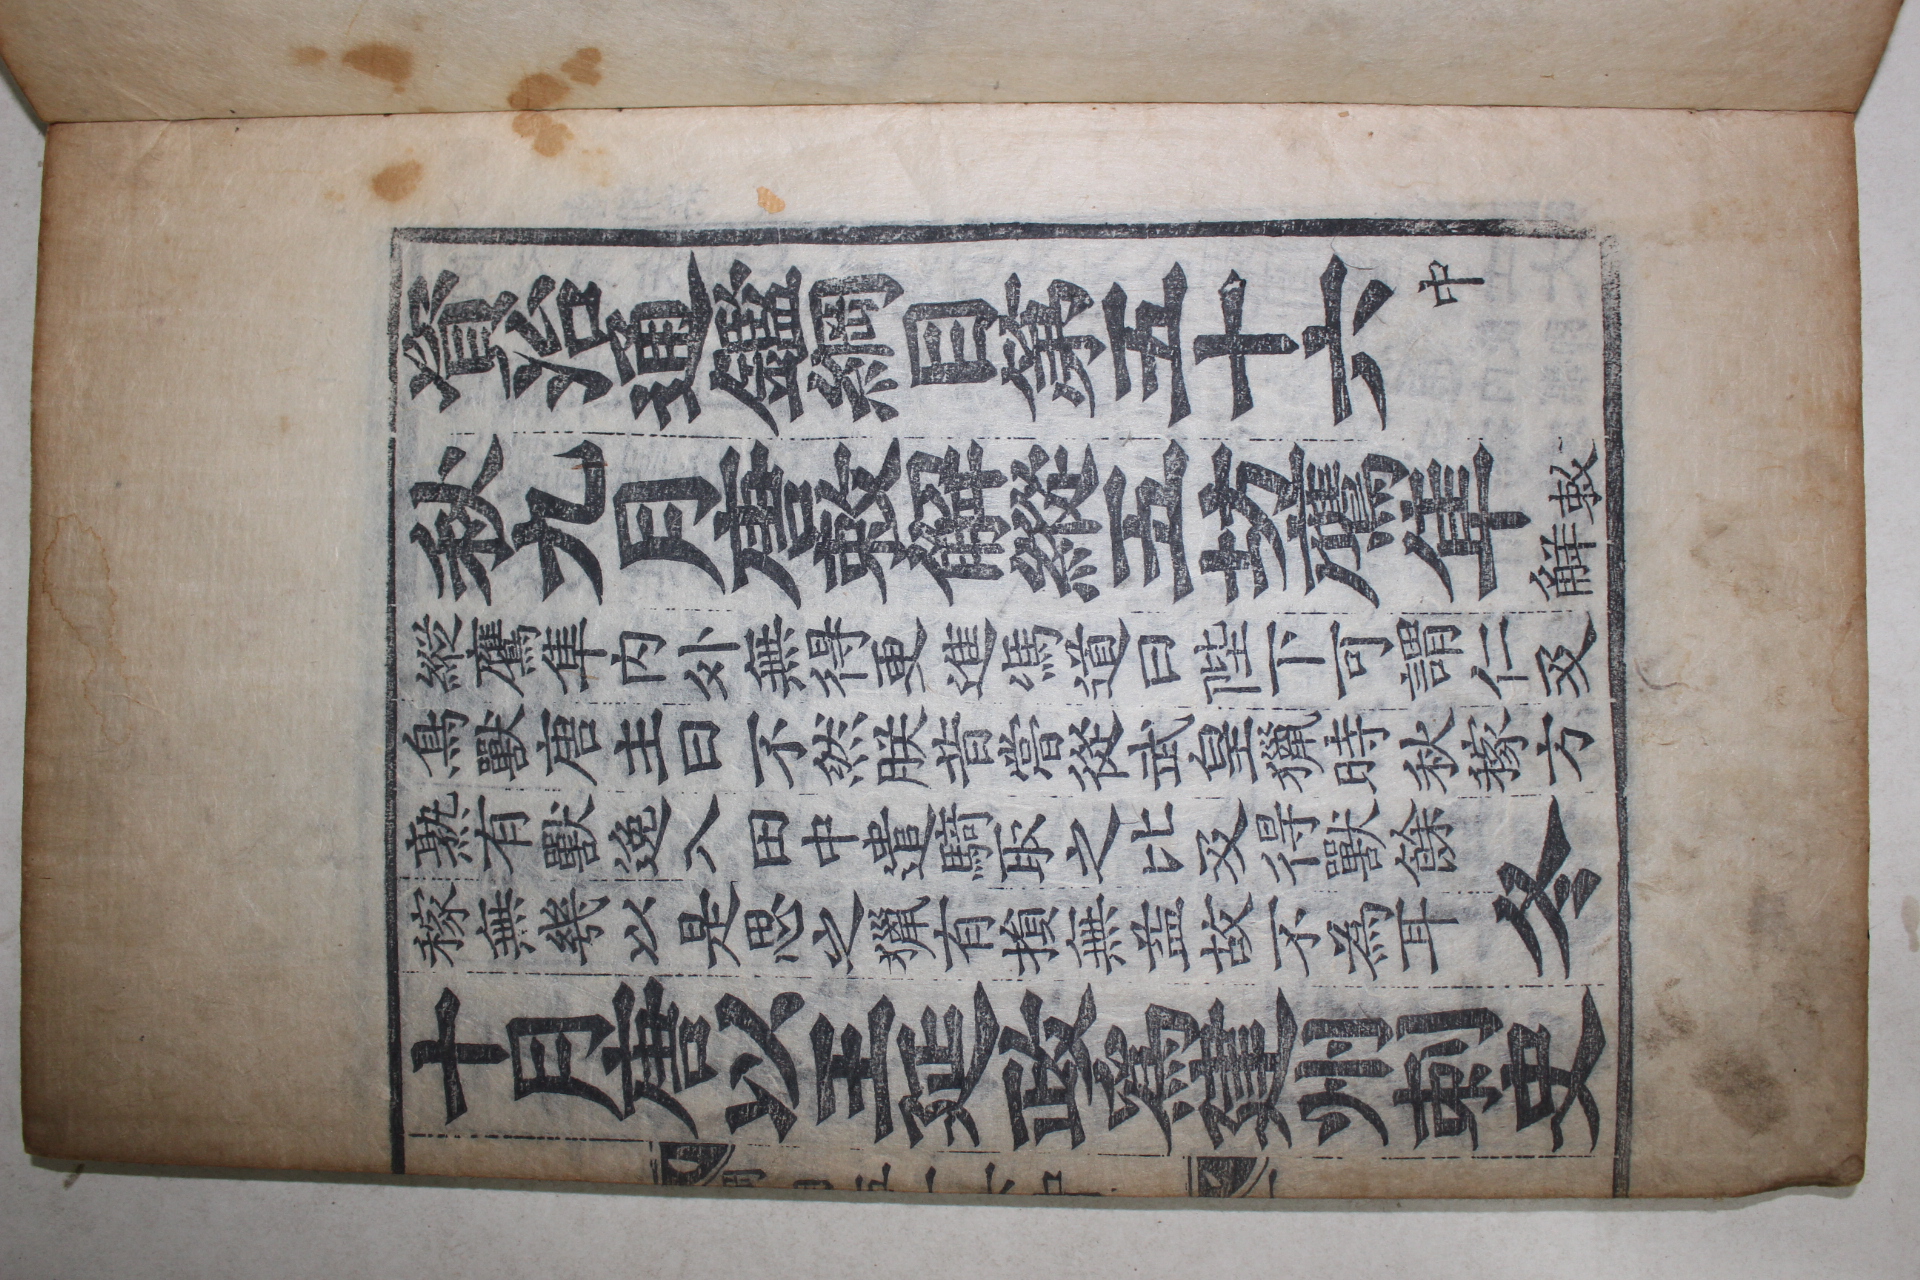 資治通鑑綱目第五十六 中
秋九月唐敕解縱五坊鷹隼 敕解
縱鷹隼内外無得更進馮道曰陛下可謂仁及
鳥獸唐主曰不然朕昔嘗從武皇獵時秋稼方
熟有獸逸入田中遣騎取之比及得獸餘
稼無幾以是思之獵有損無益故不爲耳 冬
十月唐以王延政爲建州刺史